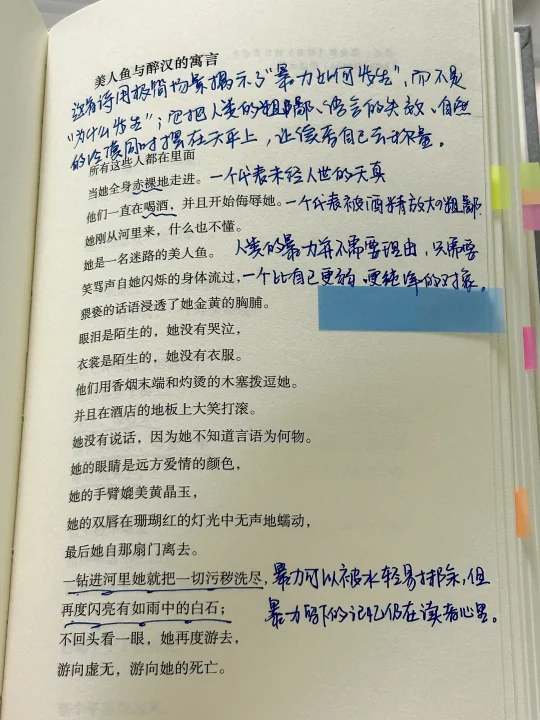 美人鱼与醉汉的寓言
这首诗用极简场景揭示了“暴力如何发生”，而不是
“为什么发生”；它把人类的粗鄙、语言的失效、自然
的冷漠同时摆在天平上，让读者自己去称量。
所有这些人都在里面
当她全身赤裸地走进。一个代表未经人世的天真
他们一直在喝酒，并且开始侮辱她。一个代表被酒精放大的粗鄙
她刚从河里来，什么也不懂。
她是一名迷路的美人鱼。 人类的暴力并不需要理由，只需要
笑骂声自她闪烁的身体流过，一个比自己更弱、更纯净的对象。
猥亵的话语浸透了她金黄的胸脯。
眼泪是陌生的，她没有哭泣，
衣裳是陌生的，她没有衣服。
他们用香烟末端和灼烫的木塞拨逗她。
并且在酒店的地板上大笑打滚。
她没有说话，因为她不知道言语为何物。
她的眼睛是远方爱情的颜色，
她的手臂媲美黄晶玉，
她的双唇在珊瑚红的灯光中无声地蠕动，
最后她自那扇门离去。
一钻进河里她就把一切污秽洗尽，暴力可以被水轻易抹除，但
再度闪亮有如雨中的白石； 暴力留下的记忆仍在读者心里。
不回头看一眼，她再度游去，
游向虚无，游向她的死亡。